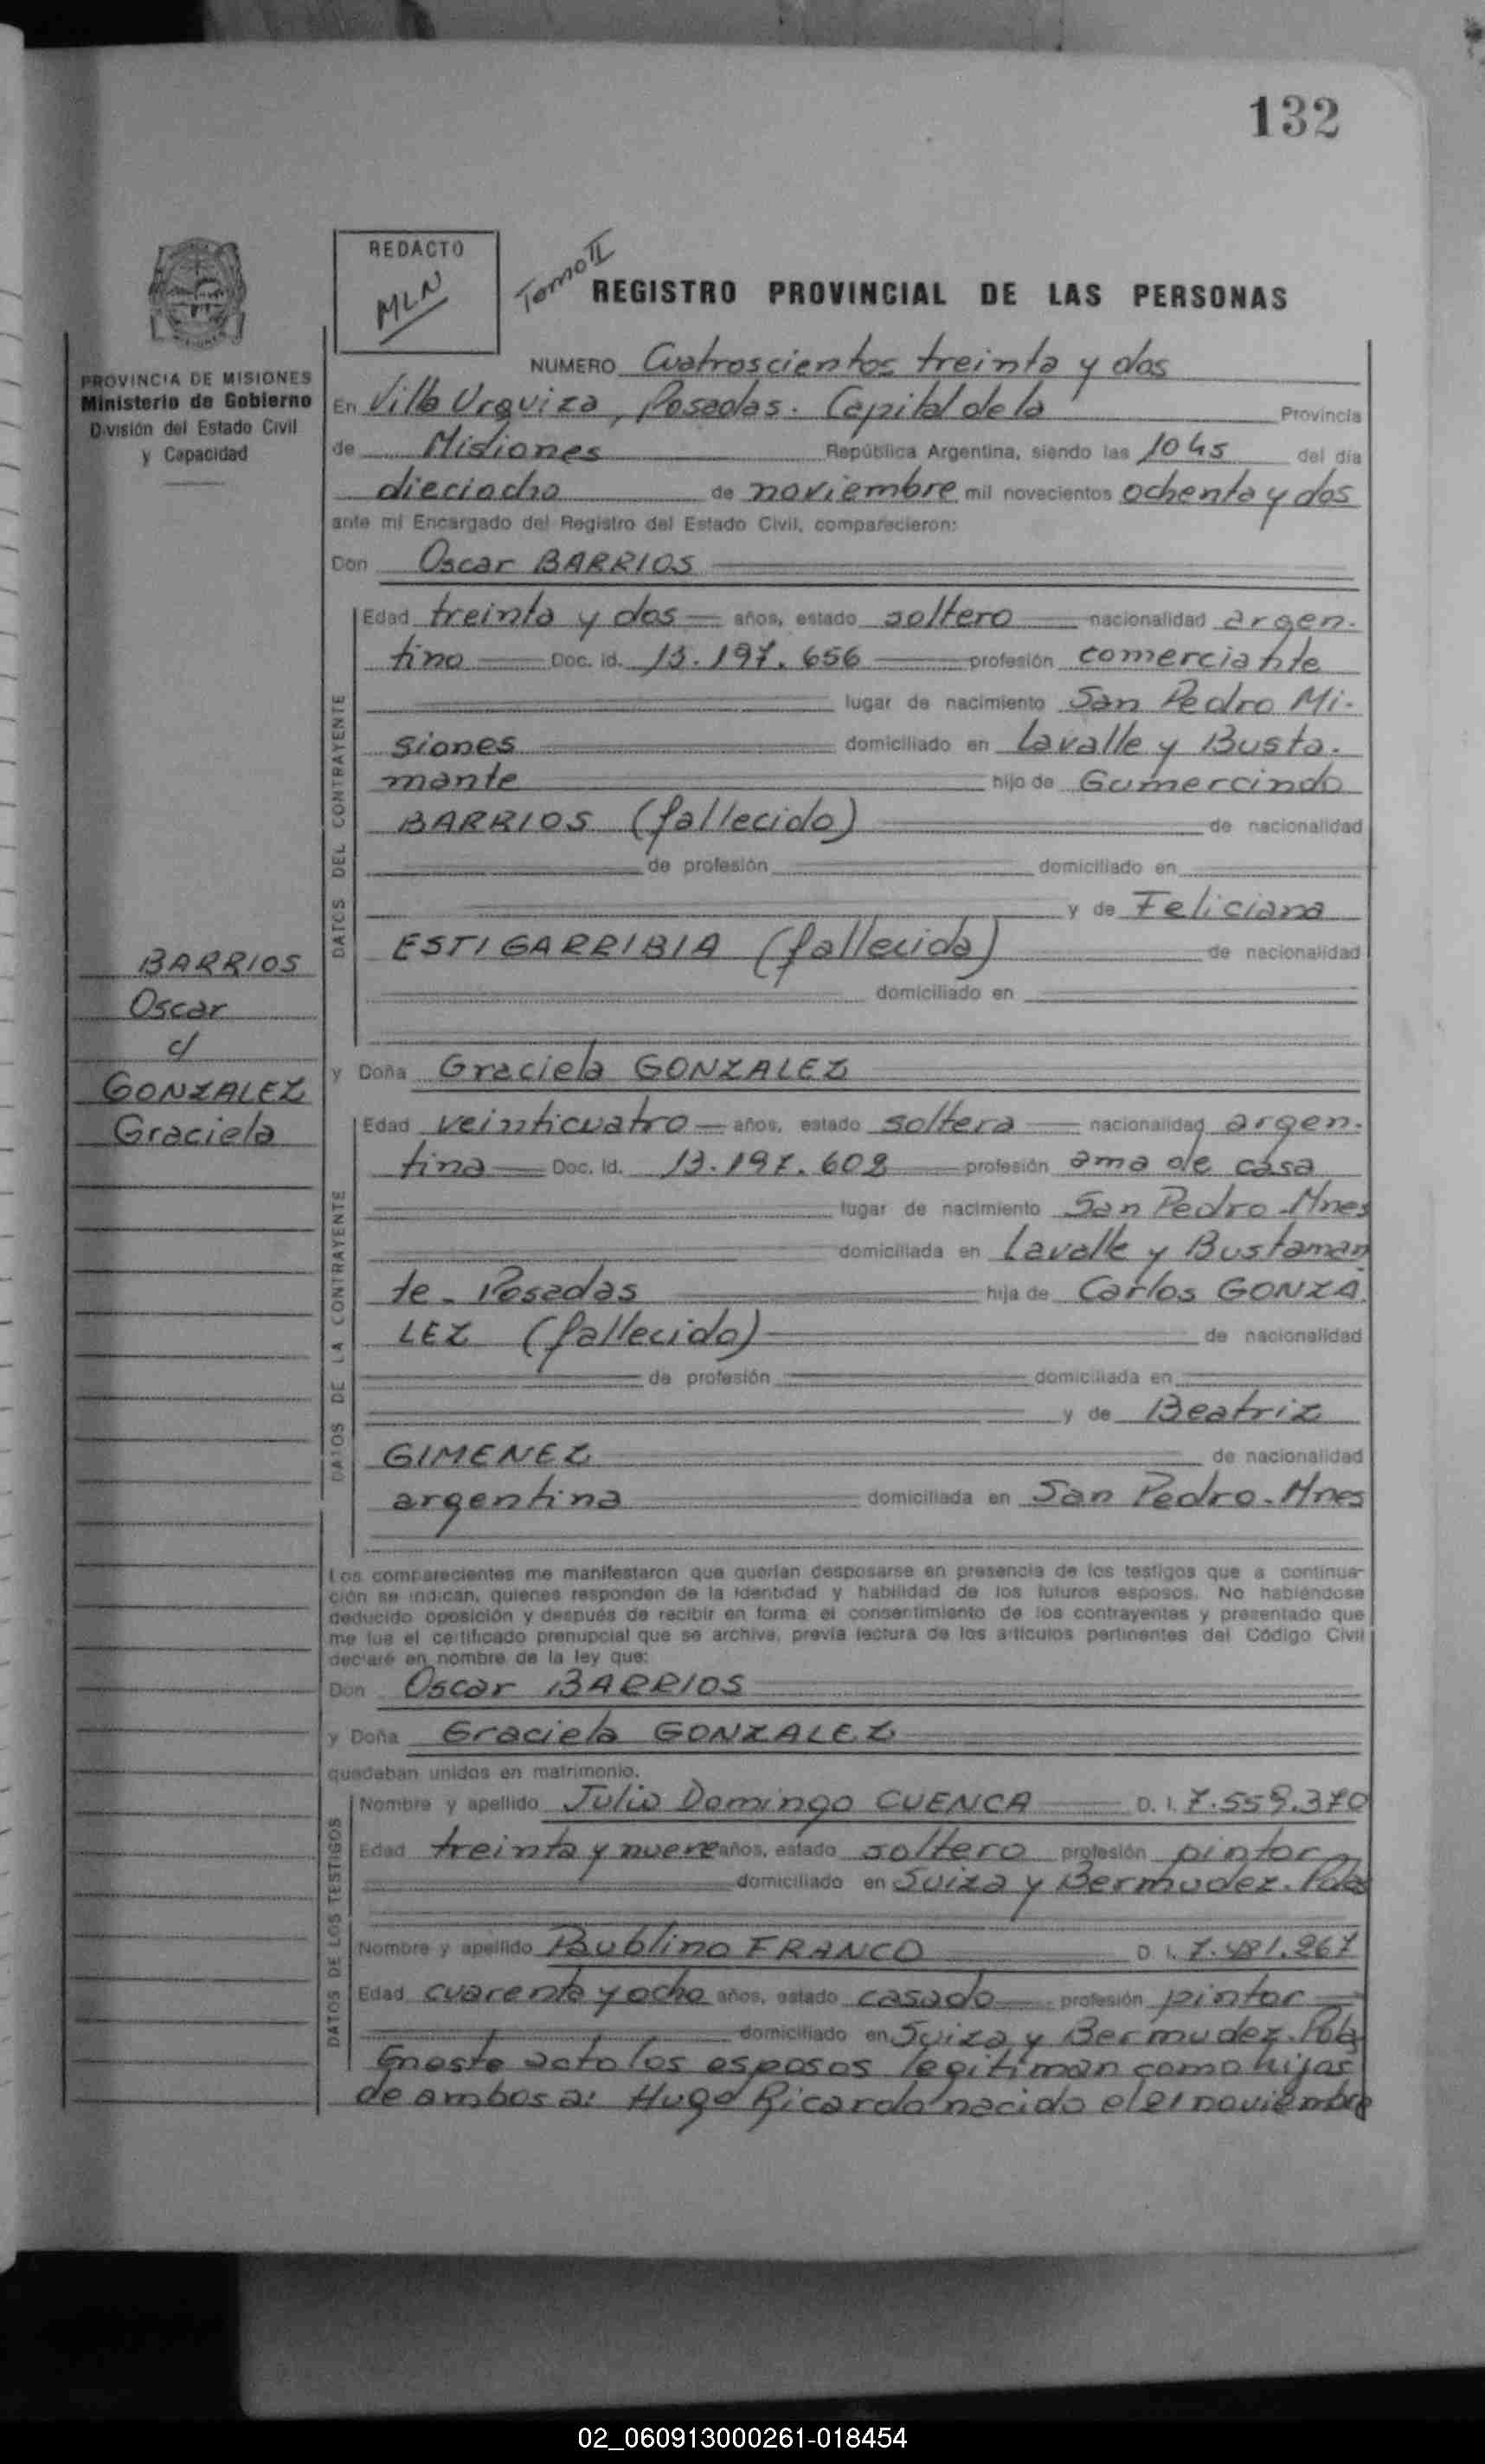 132
REDACTO
MLN
Tomo II
REGISTRO PROVINCIAL DE LAS PERSONAS
PROVINCIA DE MISIONES
Ministerio de Gobierno
División del Estado Civil
y Capacidad
NUMERO Cuatroscientos treinta y dos
En Villa Urquiza, Posadas. Capital de la Provincia
de Misiones República Argentina, siendo las 1045 del día
dieciocho de noviembre mil novecientos ochenta y dos
ante mí Encargado del Registro del Estado Civil, comparecieron:
Don Oscar BARRIOS
DATOS DEL CONTRAYENTE
Edad treinta y dos años, estado soltero nacionalidad argen.
tino Doc. Id. 13.197.656 profesión comerciante
lugar de nacimiento San Pedro Mi-
siones domiciliado en Lavalle y Busta.
mante hijo de Gumercindo
BARRIOS (fallecido) de nacionalidad
de profesión domiciliado en
y de Feliciana
ESTIGARRIBIA (fallecida) de nacionalidad
domiciliado en
BARRIOS
Oscar
c/
GONZALEZ
Graciela
y Doña Graciela GONZALEZ
DATOS DE LA CONTRAYENTE
Edad veinticuatro años, estado soltera nacionalidad argen.
tina Doc. Id. 13.197.608 profesión ama de casa
lugar de nacimiento San Pedro-Mnes
domiciliada en Lavalle y Bustaman
te- Posadas hija de Carlos GONZA.
LEZ (fallecido) de nacionalidad
de profesión domiciliada en
y de Beatriz
GIMENEZ de nacionalidad
argentina domiciliada en San Pedro-Mnes
Los comparecientes me manifestaron que querían desposarse en presencia de los testigos que a continua-
ción se indican, quienes responden de la identidad y habilidad de los futuros esposos. No habiéndose
deducido oposición y después de recibir en forma el consentimiento de los contrayentes y presentado que
me fue el certificado prenupcial que se archiva, previa lectura de los artículos pertinentes del Código Civil
declaré en nombre de la ley que:
Don Oscar BARRIOS
y Doña Graciela GONZALEZ
quedaban unidos en matrimonio.
DATOS DE LOS TESTIGOS
Nombre y apellido Julio Domingo CUENCA D. I. 7.559.370
Edad treinta y nueve años, estado soltero profesión pintor
domiciliado en Suiza y Bermudez. Pdas
Nombre y apellido Paublino FRANCO D. I. 7.481.267
Edad cuarenta y ocho años, estado casado profesión pintor
domiciliado en Suiza y Bermudez. Pdas
En este acto los esposos legitiman como hijos
de ambos a: Hugo Ricardo nacido el 21 noviembre
02_060913000261-018454